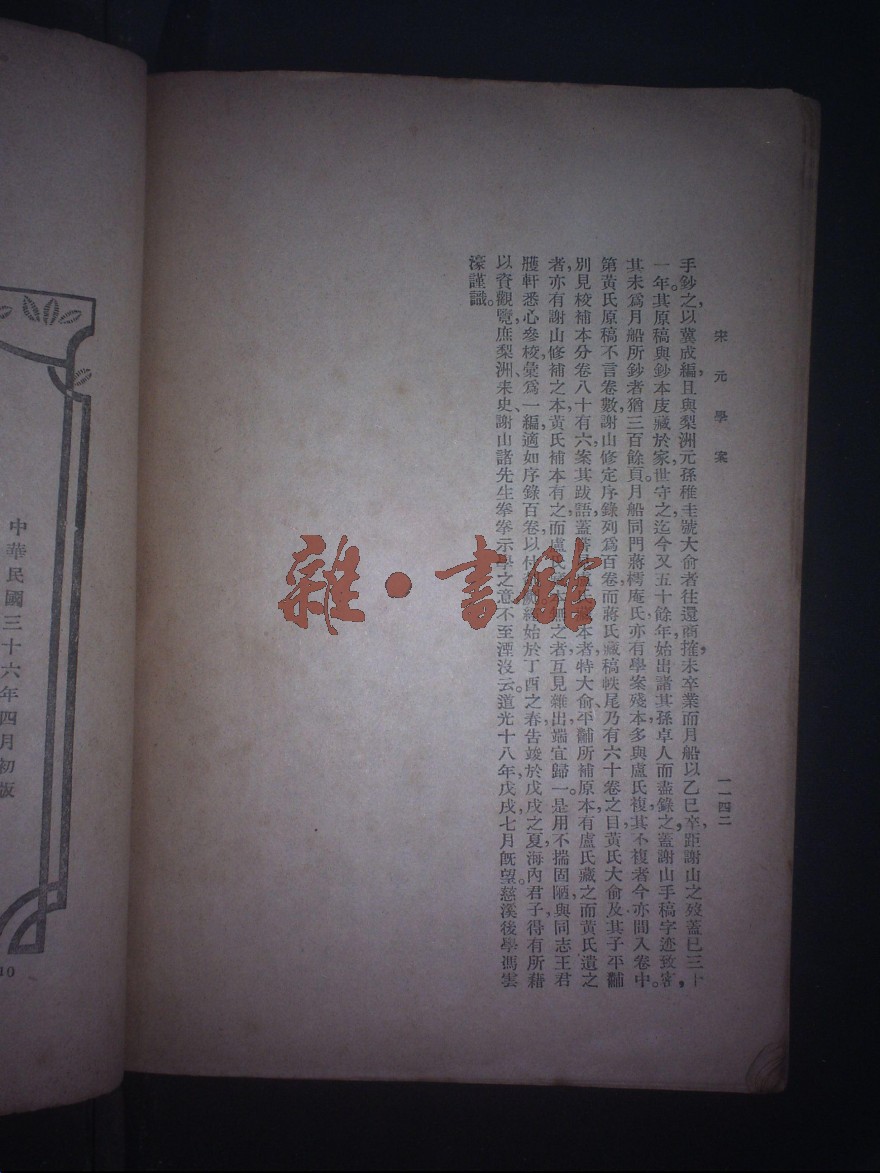 宋元學案
一一四二
手鈔之,以冀成編,且與梨洲元孫稚圭號大俞者往還商搉,未卒業而月船以乙巳卒,距謝山之歿蓋已三十
一年。其原稿與鈔本庋藏於家,世守之,迄今又五十餘年,始出諸其孫卓人而盡錄之。蓋謝山手稿字迹致密,
其未爲月船所鈔者猶三百餘頁。月船同門蔣樗庵氏亦有學案殘本,多與盧氏複,其不複者今亦間入卷中。
第黃氏原稿不言卷數,謝山修定序錄列爲百卷,而蔣氏藏稿帙尾乃有六十卷之目,黃氏大俞及其子平黼
別見校補本分卷八十有六,案其跋語,蓋本者,特大俞、平黼所補原本,有盧氏藏之而黃氏遺之
者,亦有謝山修補之本,黃氏補本有之而盧無之者,互見雜出,端宜歸一。是用不揣固陋,與同志王君
雘軒悉心參校,彙爲一編,適如序錄百卷,以付經始於丁酉之春,告竣於戊戌之夏,海內君子得有所藉
以資觀覽,庶梨洲、耒史、謝山諸先生拳拳示學之意不至湮沒云。道光十八年戊戌七月旣望,慈溪後學馮雲
濠謹識。
雜·書館
中華民國三十六年四月初版
10